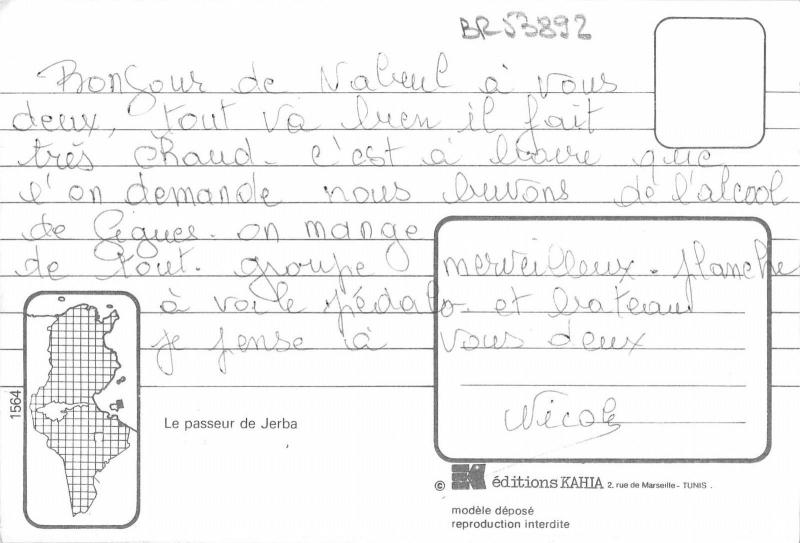 BR53892
Bonjour de Nabeul à vous
deux, tout va bien il fait
très chaud. c'est à boire que
l'on demande nous buvons de l'alcool
de figues. on mange
de tout. groupe merveilleux. planche
à voile pédalo. et bateau
je pense à vous deux
Nicole
1564
Le passeur de Jerba
© éditions KAHIA 2, rue de Marseille - TUNIS .
modèle déposé
reproduction interdite